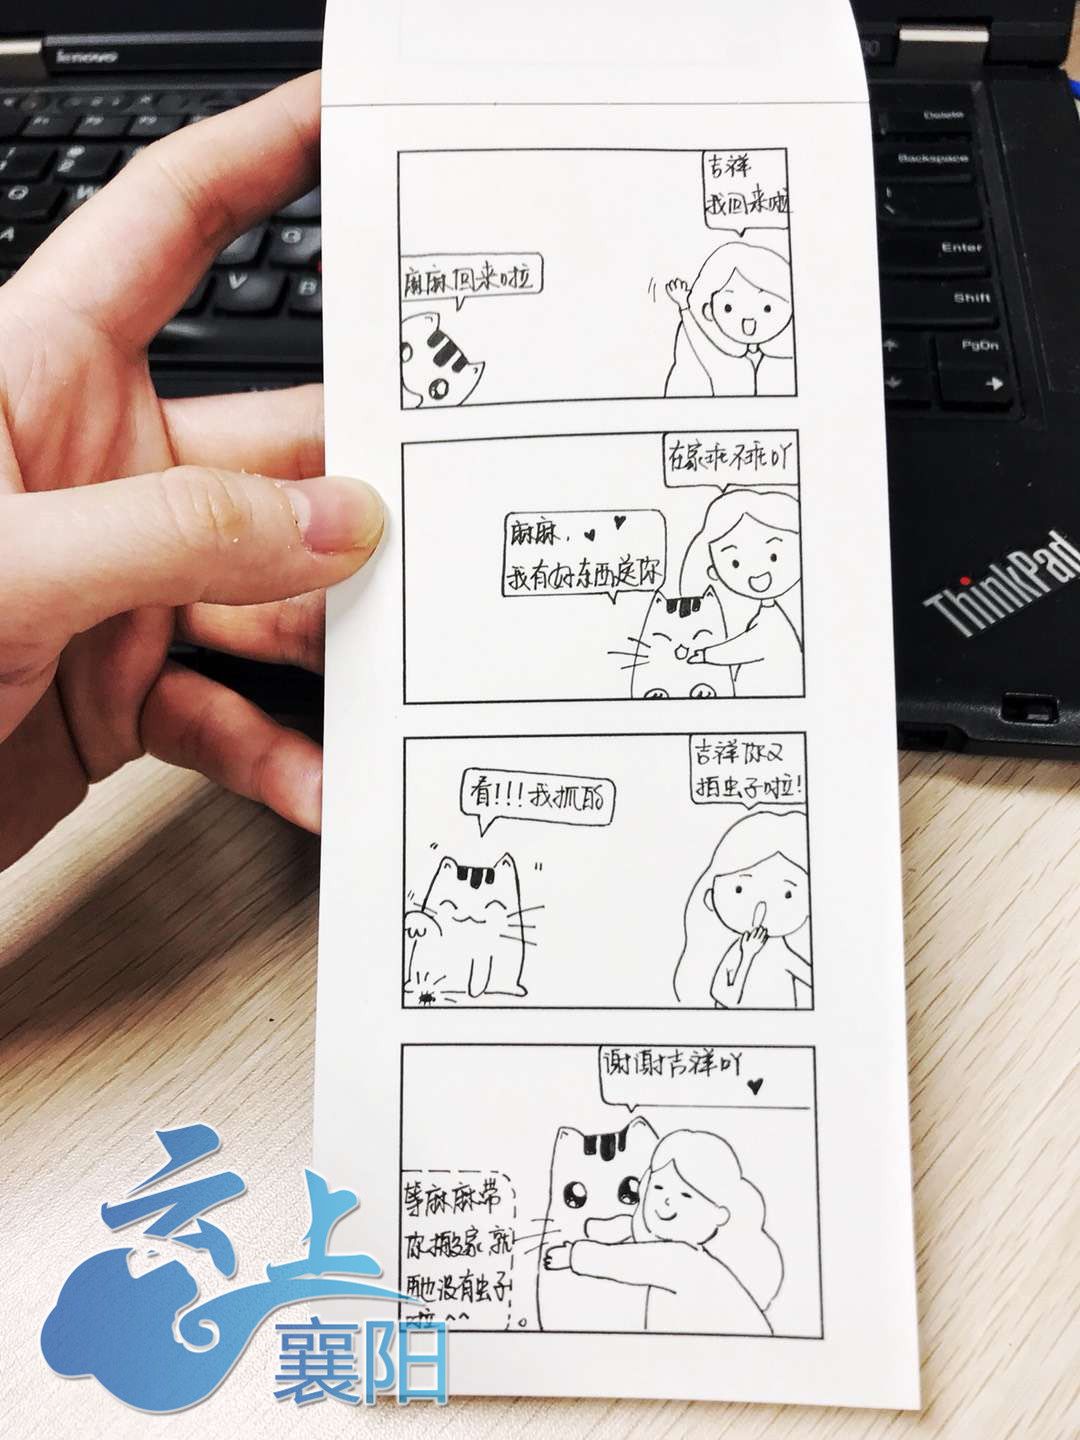 lenovo
Delete
Backspace
Enter
Shift
PgDn
ThinkPad
吉祥
我回来啦
麻麻回来啦
在家乖不乖吖
麻麻，
我有好东西送你
吉祥你又
拍虫子啦!
看!!!我抓的
谢谢吉祥吖
等麻麻带
你搬家就
再也没有虫子
啦^^
云上
襄阳